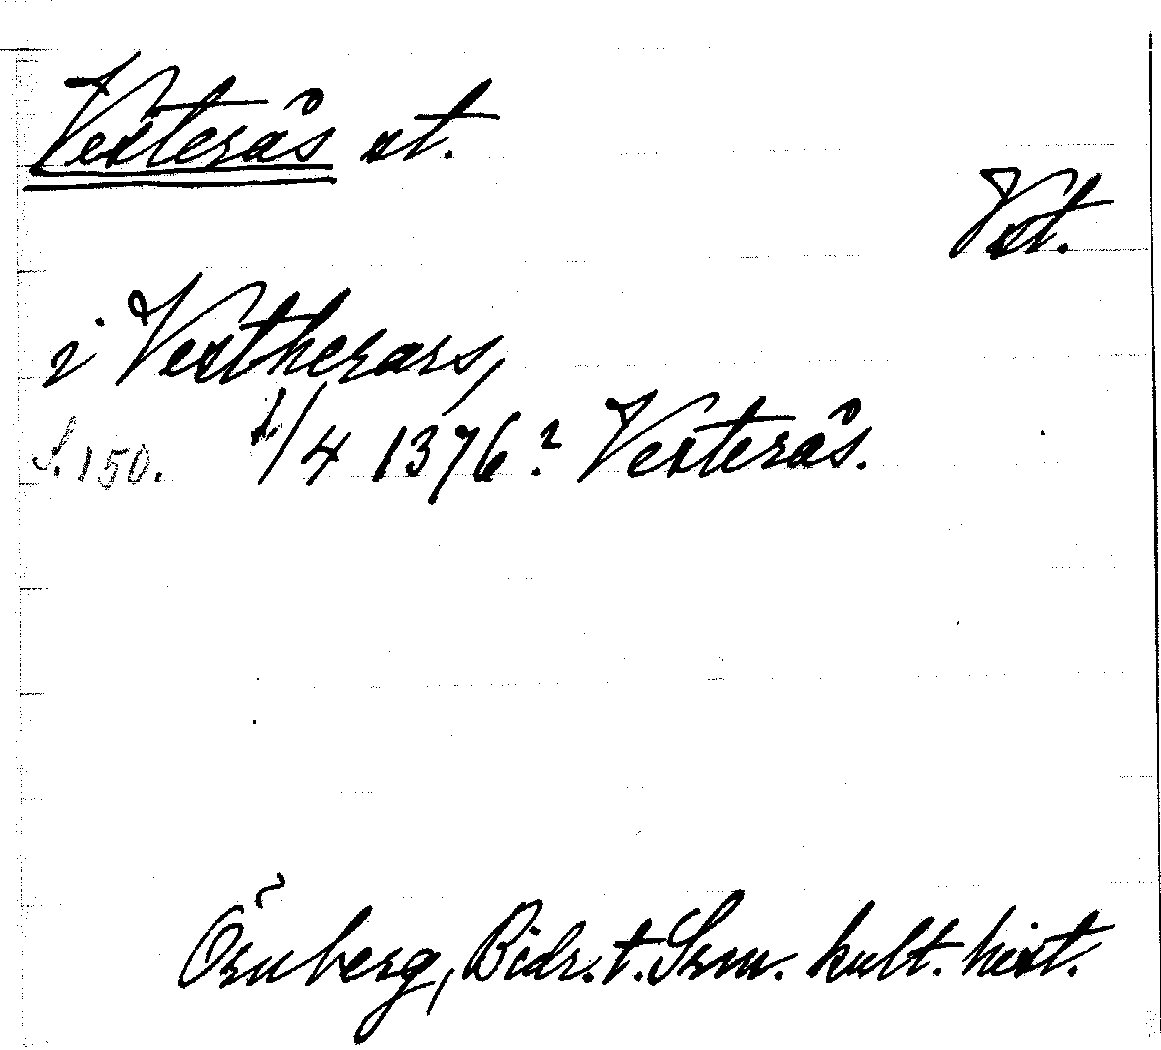 Vesterås st.
Vst.
i Vestherars,
S. 150. 1/4 1376? Vesterås.
Örnberg, Bidr. t. Srm. kult. hist.